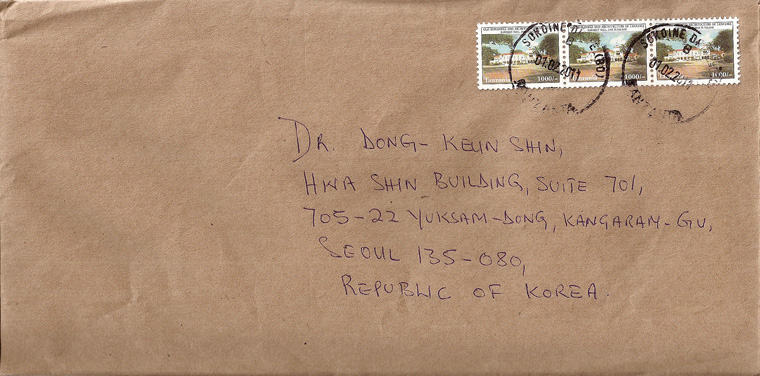 SOKOINE DR
01.02.2011
TANZANIA
Tanzania 1000/-
SOKOINE DR
01.02.2011
TANZANIA
1000/-
1000/-
DR. DONG-KEUN SHIN,
HWA SHIN BUILDING, SUITE 701,
705-22 YUKSAM-DONG, KANGARAM-GU,
SEOUL 135-080,
REPUBLIC OF KOREA.